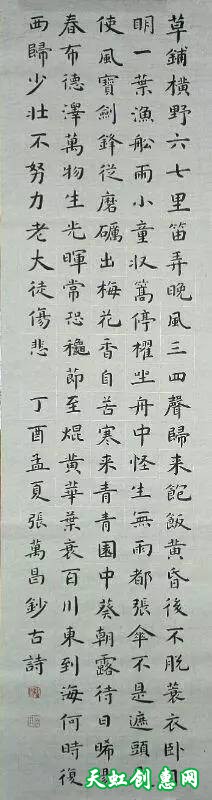 草鋪橫野六七里笛弄晚風三四聲歸来飽飯黃昏後不脫蓑衣卧月
明一葉漁舩兩小童收篙停櫂坐舟中怪生無雨都張傘不是遮頭是
使風寶劍鋒從磨礪出梅花香自苦寒来青青園中葵朝露待日晞陽
春布德澤萬物生光暉常恐穐節至焜黃華葉衰百川東到海何時復
西歸少壯不努力老大徒傷悲 丁酉孟夏張萬昌鈔古詩
天虹创惠网